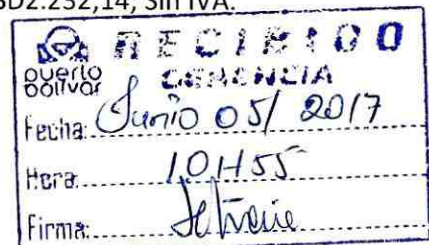 SD2.232,14, Sin IVA.
RECIBIDO
puerto
bolívar
GERENCIA
Fecha: Junio 05/2017
Hora: 10H55
Firma: